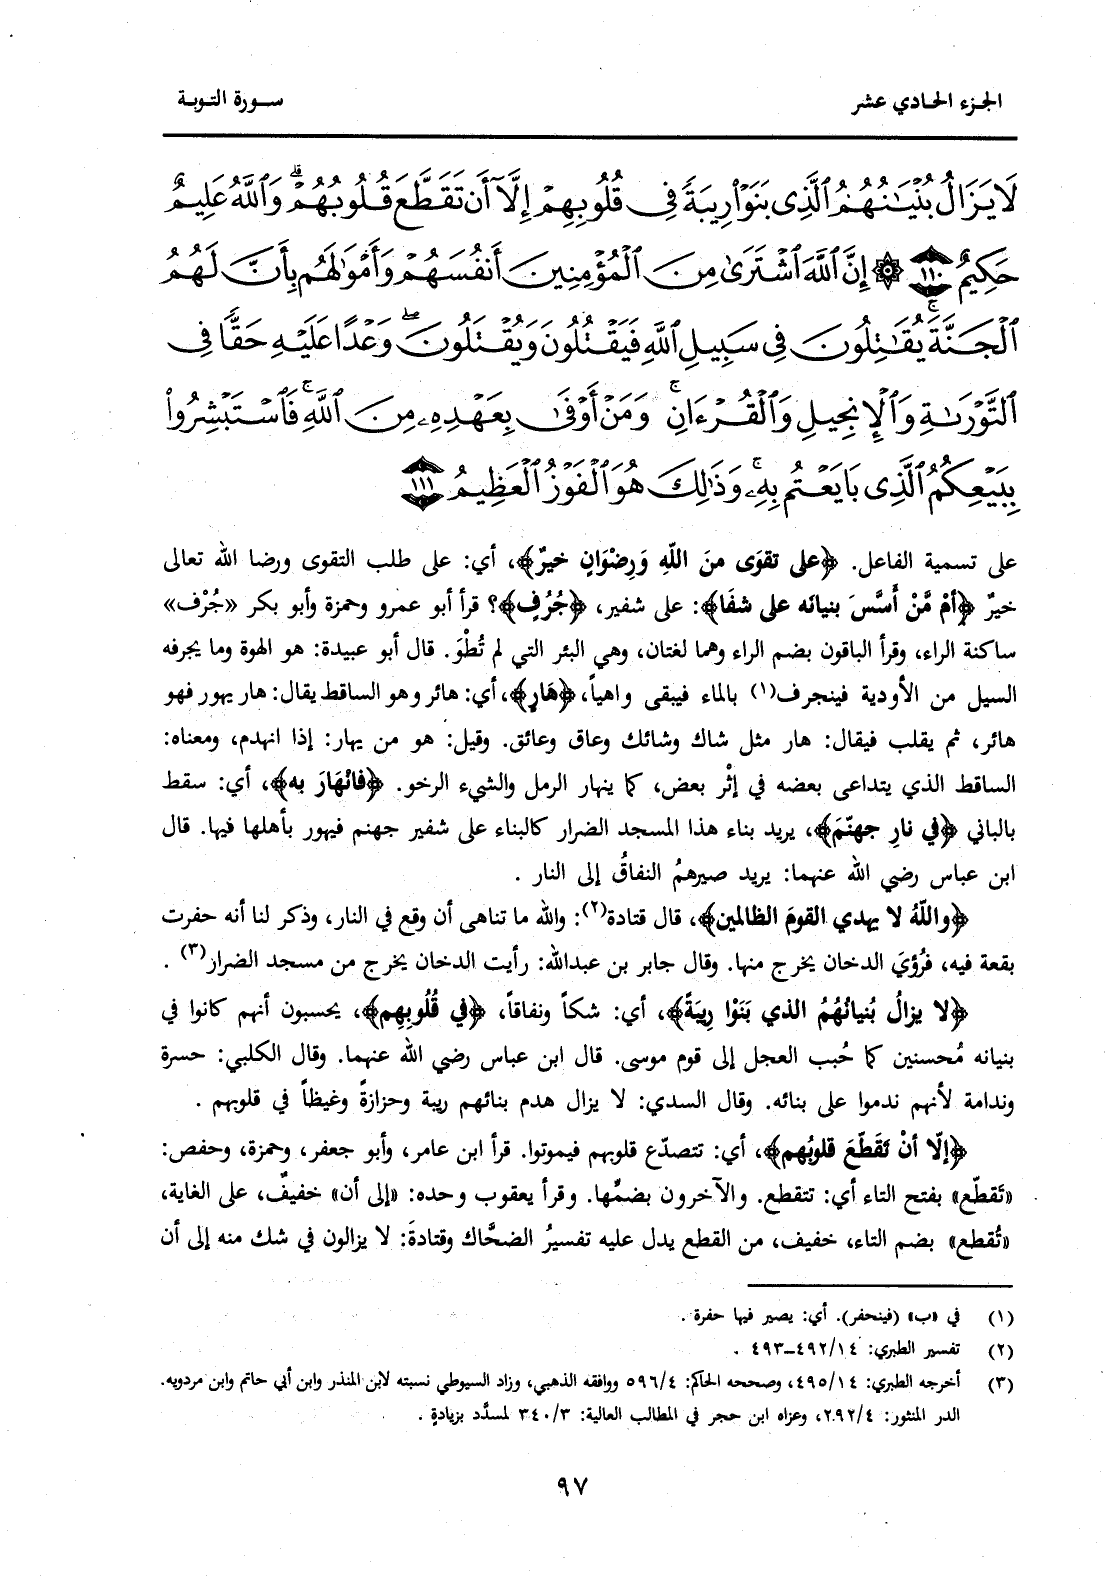 الجزء الحادي عشر
سورة التوبة
لَا يَزَالُ بُنْيَٰنُهُمُ ٱلَّذِى بَنَوْا۟ رِيبَةً فِى قُلُوبِهِمْ إِلَّآ أَن تَقَطَّعَ قُلُوبُهُمْ ۗ وَٱللَّهُ عَلِيمٌ
حَكِيمٌ ١١٠ ۞ إِنَّ ٱللَّهَ ٱشْتَرَىٰ مِنَ ٱلْمُؤْمِنِينَ أَنفُسَهُمْ وَأَمْوَٰلَهُم بِأَنَّ لَهُمُ
ٱلْجَنَّةَ ۚ يُقَٰتِلُونَ فِى سَبِيلِ ٱللَّهِ فَيَقْتُلُونَ وَيُقْتَلُونَ ۖ وَعْدًا عَلَيْهِ حَقًّا فِى
ٱلتَّوْرَىٰةِ وَٱلْإِنجِيلِ وَٱلْقُرْءَانِ ۚ وَمَنْ أَوْفَىٰ بِعَهْدِهِۦ مِنَ ٱللَّهِ ۚ فَٱسْتَبْشِرُوا۟
بِبَيْعِكُمُ ٱلَّذِى بَايَعْتُم بِهِۦ ۚ وَذَٰلِكَ هُوَ ٱلْفَوْزُ ٱلْعَظِيمُ ١١١
على تسمية الفاعل. ﴿على تقوَى منَ اللّهِ وَرِضْوَانٍ خيرٌ﴾، أي: على طلب التقوى ورضا الله تعالى
خيرٌ ﴿أمْ مَّنْ أَسَّسَ بنيانَه على شفَا﴾: على شفير، ﴿جُرُفٍ﴾؟ قرأ أبو عمرو وحمزة وأبو بكر «جُرْف»
ساكنة الراء، وقرأ الباقون بضم الراء وهما لغتان، وهي البئر التي لم تُطْوَ. قال أبو عبيدة: هو الهوة وما يجرفه
السيل من الأودية فينجرف(١) بالماء فيبقى واهياً، ﴿هَارٍ﴾، أي: هائر وهو الساقط يقال: هار يهور فهو
هائر، ثم يقلب فيقال: هار مثل شاك وشائك وعاق وعائق. وقيل: هو من يهار: إذا انهدم، ومعناه:
الساقط الذي يتداعى بعضه في إثْر بعض، كما ينهار الرمل والشيء الرخو. ﴿فانْهَارَ به﴾، أي: سقط
بالباني ﴿في نارِ جهنّمَ﴾، يريد بناء هذا المسجد الضرار كالبناء على شفير جهنم فيهور بأهلها فيها. قال
ابن عباس رضي الله عنهما: يريد صيرهمُ النفاقُ إلى النار .
﴿واللّهُ لا يهدي القومَ الظالمين﴾، قال قتادة(٢): والله ما تناهى أن وقع في النار، وذكر لنا أنه حفرت
بقعة فيه، فرُؤيَ الدخان يخرج منها. وقال جابر بن عبدالله: رأيت الدخان يخرج من مسجد الضرار(٣) .
﴿لا يزالُ بُنيانُهُمُ الذي بَنَوْا رِيبَةً﴾، أي: شكاً ونفاقاً، ﴿في قُلُوبِهِم﴾، يحسبون أنهم كانوا في
بنيانه مُحسنين كما حُبب العجل إلى قوم موسى. قال ابن عباس رضي الله عنهما. وقال الكلبي: حسرة
وندامة لأنهم ندموا على بنائه. وقال السدي: لا يزال هدم بنائهم ريبة وحزازةً وغيظاً في قلوبهم .
﴿إلّا أنْ تَقطّعَ قلوبُهم﴾، أي: تتصدّع قلوبهم فيموتوا. قرأ ابن عامر، وأبو جعفر، وحمزة، وحفص:
«تَقطّع» بفتح التاء أي: تتقطع. والآخرون بضمِّها. وقرأ يعقوب وحده: «إلى أن» خفيفٌ، على الغاية،
«تُقطع» بضم التاء، خفيف، من القطع يدل عليه تفسيرُ الضحَّاك وقتادةَ: لا يزالون في شك منه إلى أن
(١) في «ب» (فينحفر). أي: يصير فيها حفرة .
(٢) تفسير الطبري: ٤٩٢/١٤ــ٤٩٣ .
(٣) أخرجه الطبري: ٤٩٥/١٤، وصححه الحاكم: ٥٩٦/٤ ووافقه الذهبي، وزاد السيوطي نسبته لابن المنذر وابن أبي حاتم وابن مردويه.
الدر المنثور: ٢٩٢/٤، وعزاه ابن حجر في المطالب العالية: ٣٤٠/٣ لمسدَّد بزيادةٍ .
٩٧